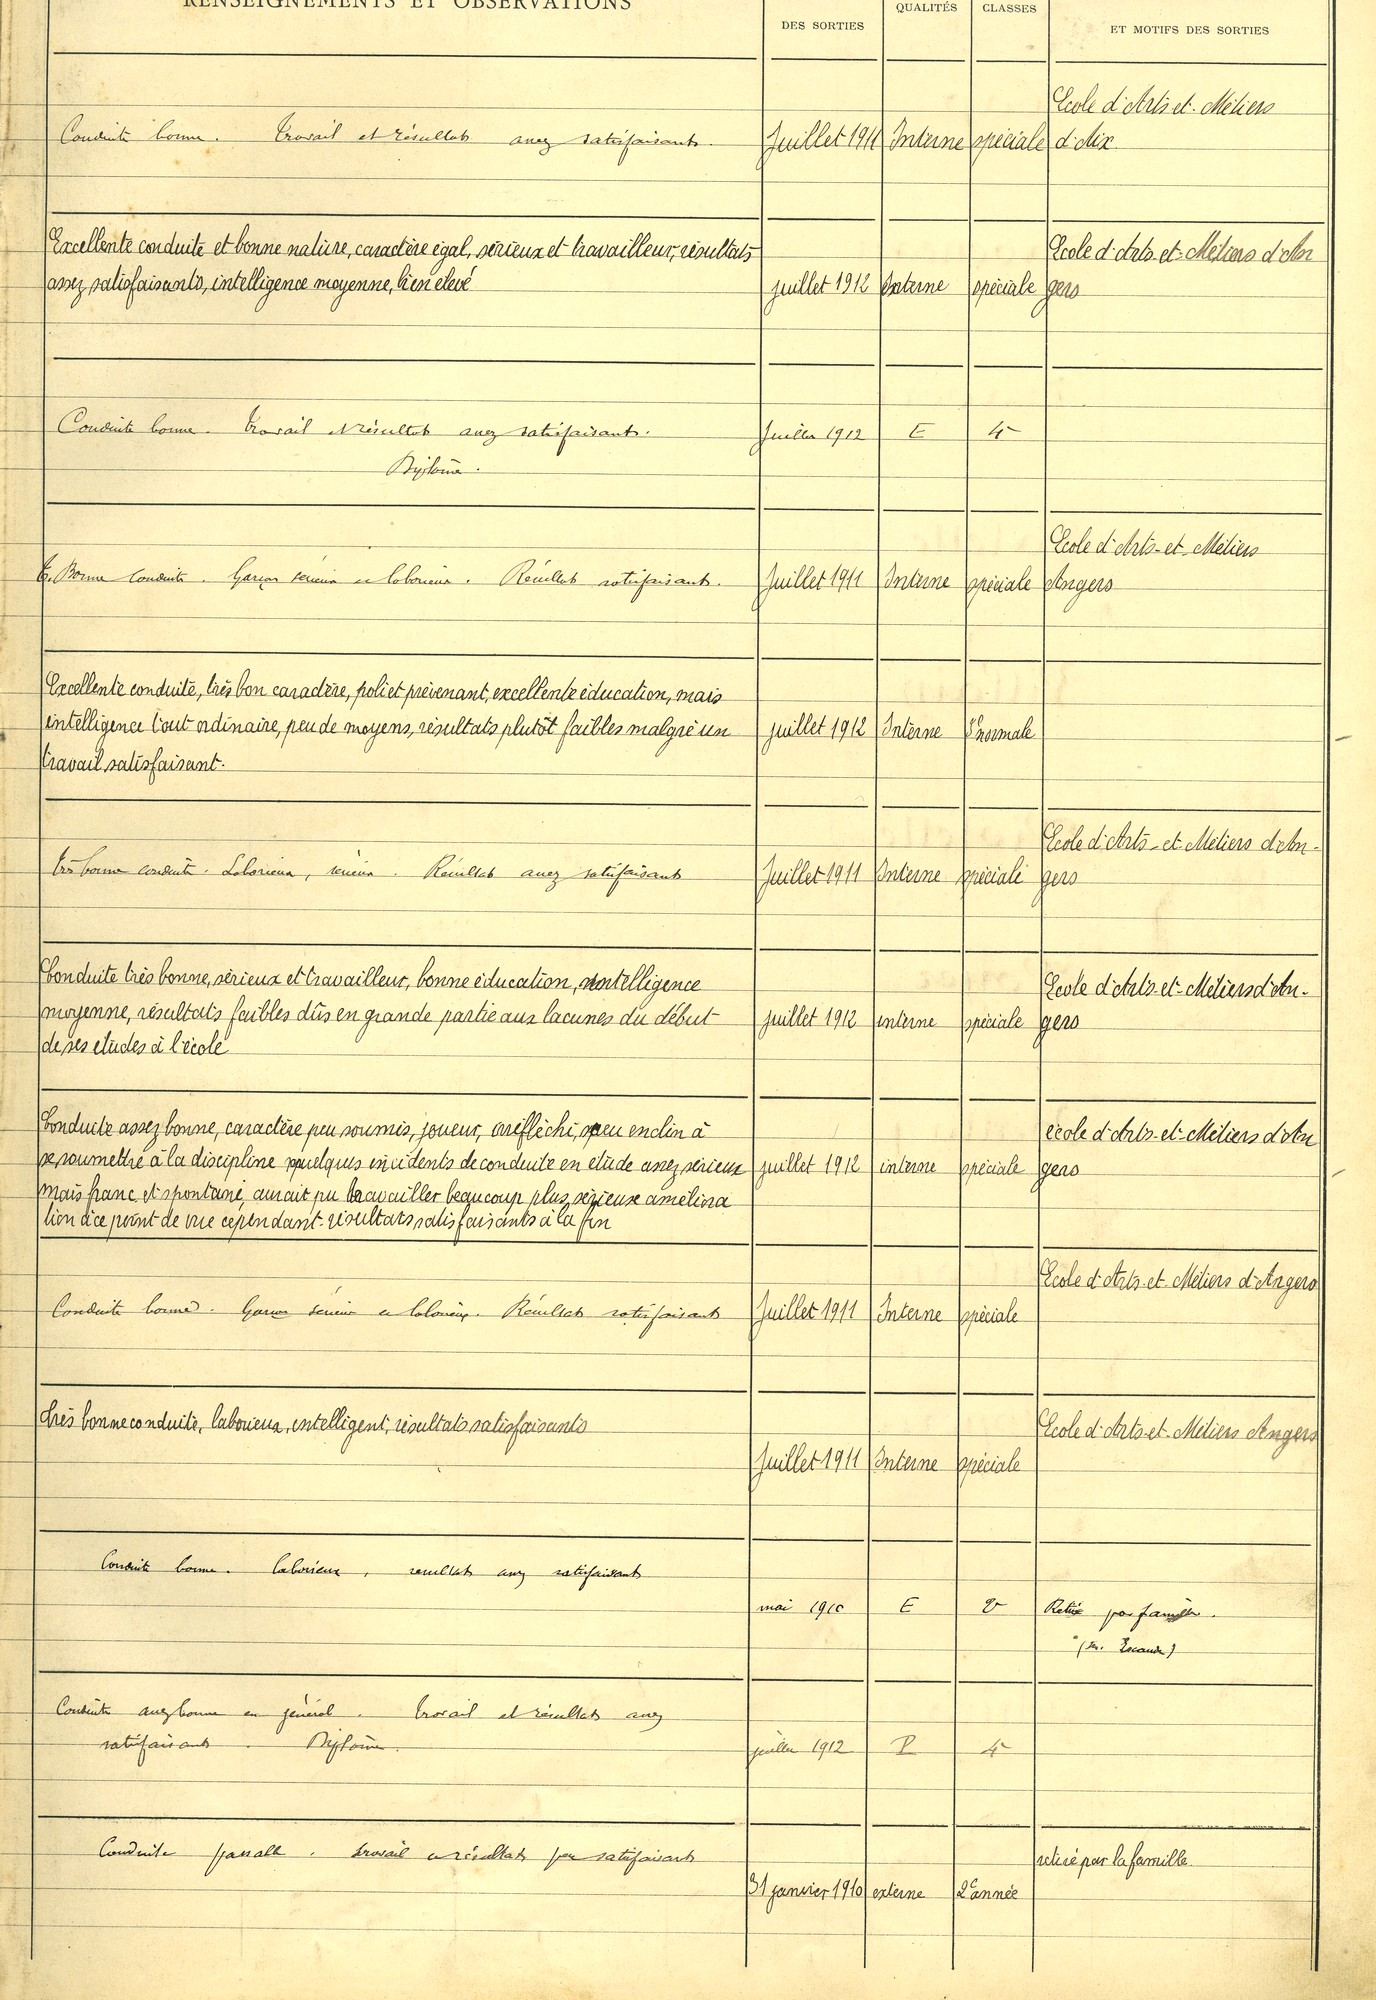 RENSEIGNEMENTS ET OBSERVATIONS
DES SORTIES
QUALITÉS
CLASSES
ET MOTIFS DES SORTIES
Conduite bonne. Travail et résultats assez satisfaisants.
Juillet 1911
Interne
spéciale
Ecole d'Arts-et-Métiers
d'Aix
Excellente conduite et bonne nature, caractère égal, sérieux et travailleur, résultats
assez satisfaisants, intelligence moyenne, bien élevé
juillet 1912
Interne
spéciale
Ecole d'Arts-et-Métiers d'An
gers
Conduite bonne. Travail et résultats assez satisfaisants.
Diplôme.
Juillet 1912
E
4e
T. Bonne conduite. Garçon sérieux et laborieux. Résultats satisfaisants.
Juillet 1911
Interne
spéciale
Ecole d'Arts-et-Métiers
Angers
Excellente conduite, très bon caractère, poli et prévenant, excellente éducation, mais
intelligence tout ordinaire, peu de moyens, résultats plutôt faibles malgré un
travail satisfaisant.
juillet 1912
Interne
normale
Très bonne conduite. Laborieux, sérieux. Résultats assez satisfaisants
Juillet 1911
Interne
spéciale
Ecole d'Arts-et-Métiers d'An-
gers
Conduite très bonne, sérieux et travailleur, bonne éducation, intelligence
moyenne, résultats faibles dûs en grande partie aux lacunes du début
de ses etudes à l'école
juillet 1912
interne
spéciale
Ecole d'Arts-et-Métiers d'An-
gers
Conduite assez bonne, caractère peu soumis, joueur, irréfléchi, peu enclin à
se soumettre à la discipline quelques incidents de conduite en etude assez sérieux
mais franc et spontané, aurait pu travailler beaucoup plus, sérieuse améliora
tion à ce point de vue cependant résultats satisfaisants à la fin
juillet 1912
interne
spéciale
école d'Arts-et-Métiers d'An
gers
Conduite bonne. Garçon sérieux et laborieux. Résultats satisfaisants
Juillet 1911
Interne
spéciale
Ecole d'Arts-et-Métiers d'Angers
Très bonne conduite, laborieux, intelligent, résultats satisfaisants
Juillet 1911
Interne
spéciale
Ecole d'Arts-et-Métiers Angers
Conduite bonne. laborieux, résultats assez satisfaisants
mai 1910
E
2e
Retiré par famille.
Conduite assez bonne en général. Travail et résultats assez
satisfaisants. Diplôme.
juillet 1912
P
4e
Conduite passable. travail et résultats peu satisfaisants
31 janvier 1910
externe
2e année
retiré par la famille.